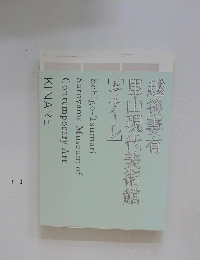 越後妻有
里山現代美術館
［キナーレ］
Echigo-Tsumari
Satoyama Museum of
Contemporary Art
KINARE